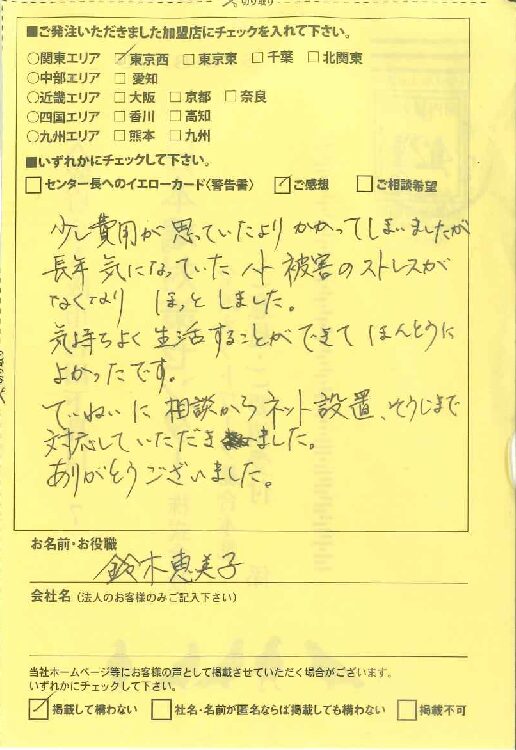 ■ご発注いただきました加盟店にチェックを入れて下さい。
○関東エリア ☑東京西 □東京東 □千葉 □北関東
○中部エリア □愛知
○近畿エリア □大阪 □京都 □奈良
○四国エリア □香川 □高知
○九州エリア □熊本 □九州
■いずれかにチェックして下さい。
□センター長へのイエローカード(警告書) ☑ご感想 □ご相談希望
少し費用が思っていたよりかかってしまいましたが
長年気になっていたハト被害のストレスが
なくなり ほっとしました。
気持ちよく生活することができて ほんとうに
よかったです。
ていねいに相談からネット設置、そうじまで
対応していただきました。
ありがとうございました。
お名前・お役職
鈴木恵美子
会社名(法人のお客様のみご記入下さい)
当社ホームページ等にお客様の声として掲載させていただく場合がございます。
いずれかにチェックして下さい。
☑掲載して構わない □社名・名前が匿名ならば掲載しても構わない □掲載不可